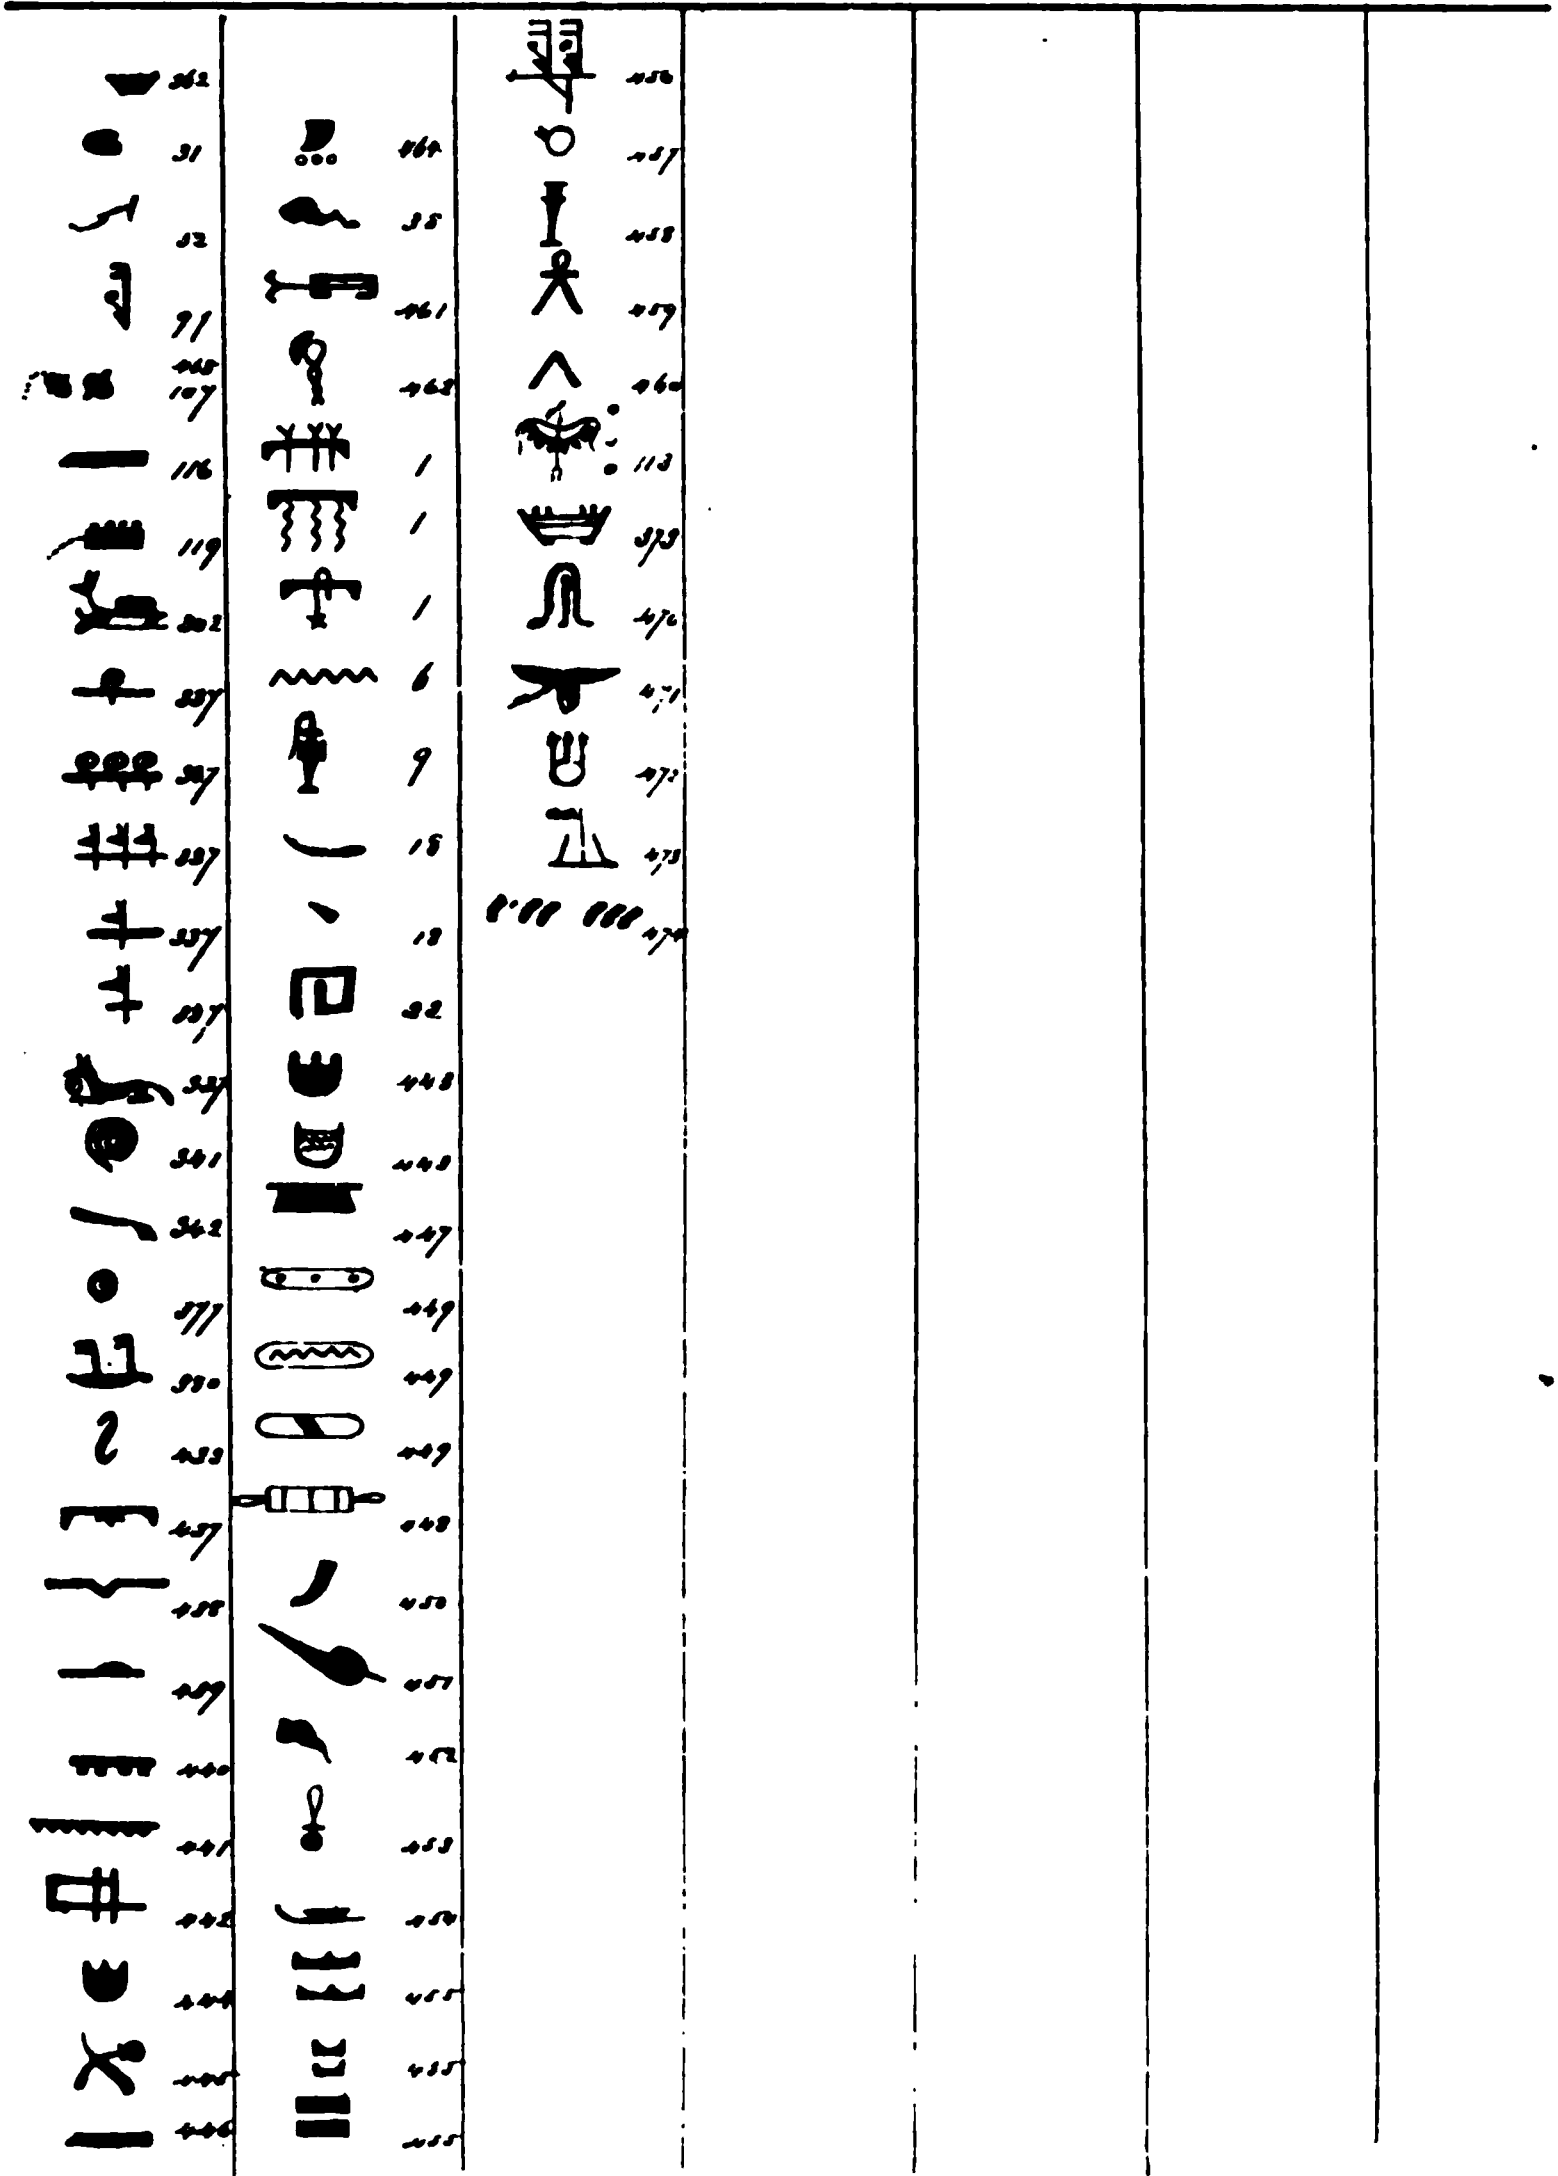 362
31
32
91
465
107
116
119
302
337
337
337
337
337
337
341
342
377
380
433
437
438
439
440
441
442
444
445
446
464
35
461
462
1
1
1
6
9
15
18
32
443
443
447
449
449
449
448
450
451
452
453
454
455
455
455
456
457
458
459
460
113
373
470
471
472
473
474